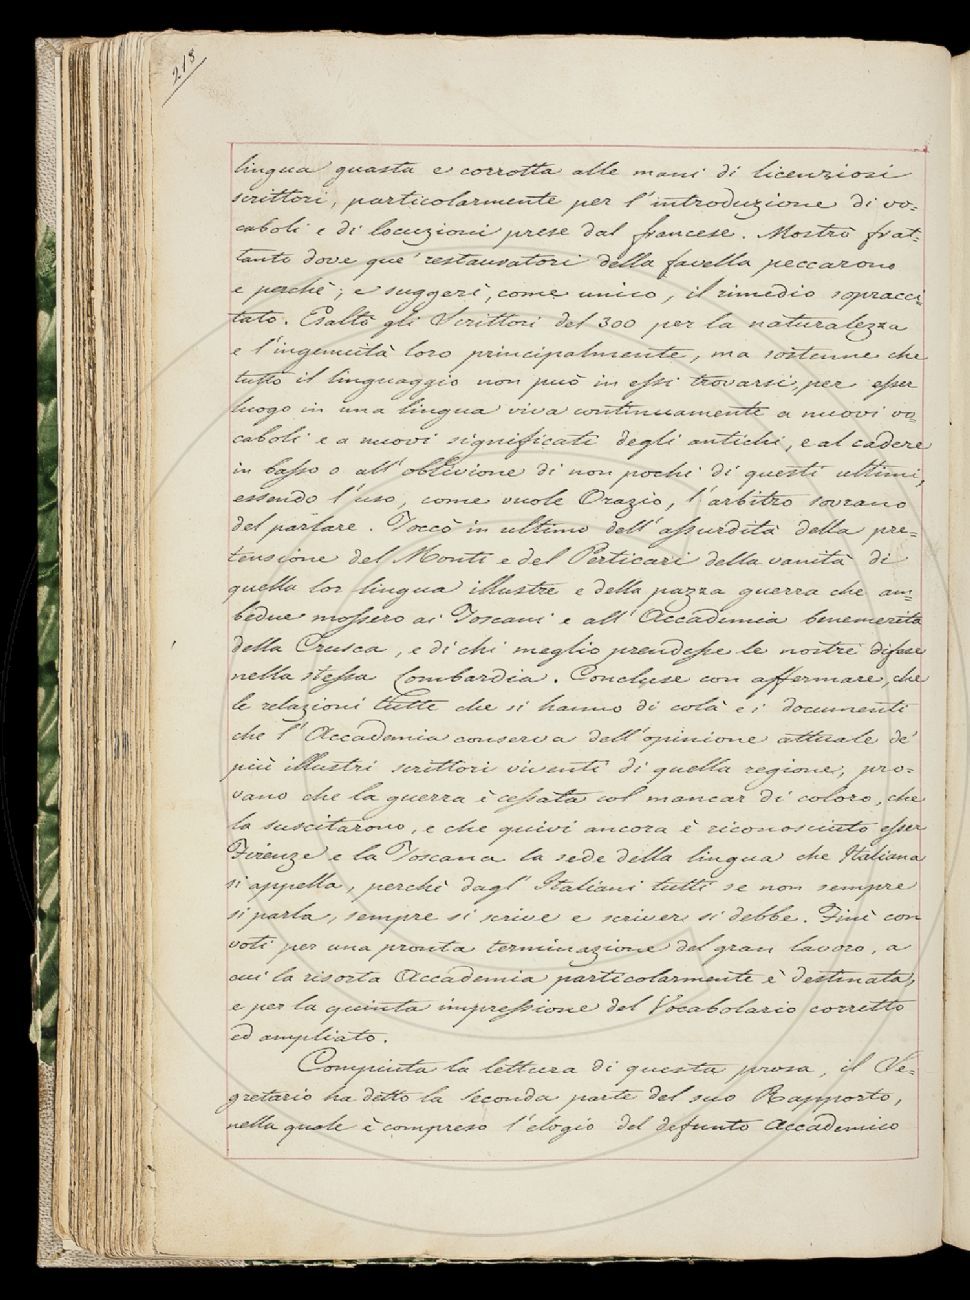 218
lingua guasta e corrotta alle mani di licenziosi
scrittori, particolarmente per l'introduzione di vo=
caboli e di locuzioni prese dal francese. Mostrò frat=
tanto dove que' restauratori della favella peccarono
e perchè; e suggerì, come unico, il rimedio sopracci=
tato. Esaltò gli Scrittori del 300 per la naturalezza
e l'ingenuità loro principalmente, ma sostenne che
tutto il linguaggio non può in essi trovarsi, per esser
luogo in una lingua viva continuamente a nuovi vo=
caboli e a nuovi significati degli antichi, e al cadere
in basso o all'oblivione di non pochi di questi ultimi,
essendo l'uso, come vuole Orazio, l'arbitro sovrano
del parlare. Toccò in ultimo dell'assurdità della pre=
tensione del Monti e del Perticari della vanità di
quella lor lingua illustre e della pazza guerra che am=
bedue mossero ai Toscani e all'Accademia benemerita
della Crusca, e di chi meglio prendesse le nostre difese
nella stessa Lombardia. Concluse con affermare, che
le relazioni tutte che si hanno di colà e i documenti
che l'Accademia conserva dell'opinione attuale de'
più illustri scrittori viventi di quella regione, pro=
vano che la guerra è cessata col mancar di coloro, che
la suscitarono, e che quivi ancora è riconosciuto esser
Firenze e la Toscana la sede della lingua che Italiana
si appella, perchè dagl'Italiani tutti se non sempre
si parla, sempre si scrive e scriver si debbe. Finì con
voti per una pronta terminazione del gran lavoro, a
cui la risorta Accademia particolarmente è destinata,
e per la quinta impressione del Vocabolario corretto
ed ampliato.
Compiuta la lettura di questa prosa, il Se=
gretario ha detto la seconda parte del suo Rapporto,
nella quale è compreso l'elogio del defunto Accademico